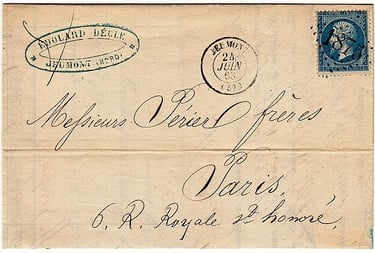 EDOUARD DÉCLE
JEUMONT (NORD)
JEUMONT
24
JUIN
63
(57)
Messieurs Périer frères
Paris,
6. R. Royale St honoré.